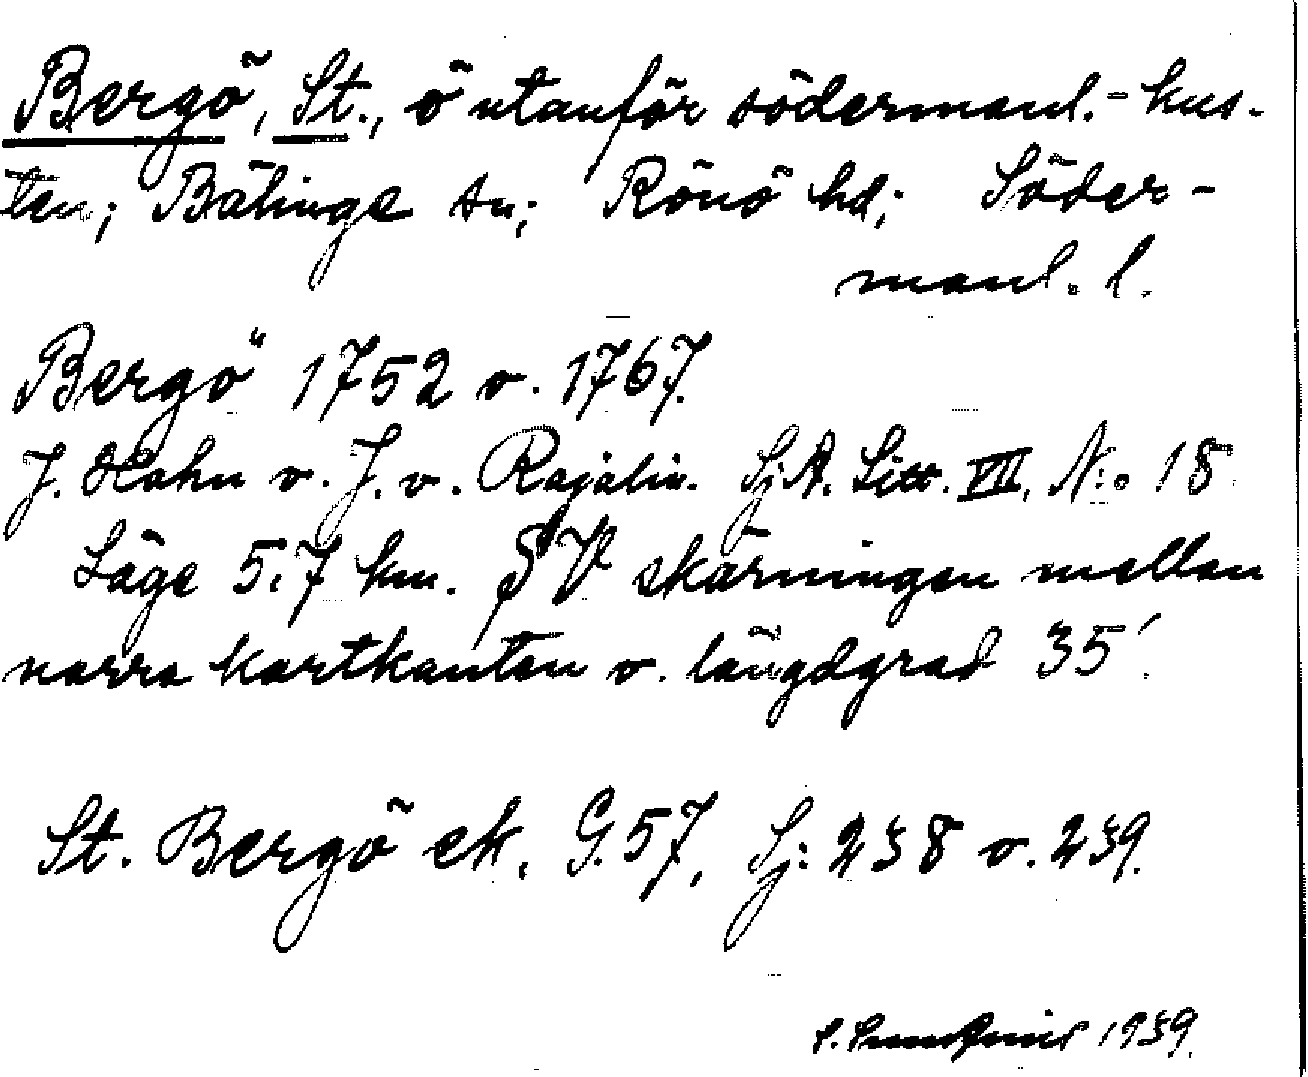 Bergö, St., ö utanför södermanl.-kus-
ten; Bälinge sn; Rönö hd; Söder-
manl. l.
Bergö 1752 o. 1767.
J. Hahn o. J. v. Rajalin. Sj.A. Litt. VII, N:o 18
Läge 5,7 km. SV skärningen mellan
norra kartkanten o. längdgrad 35'.
St. Bergö ek. G. 57, Sj: 238 o. 239.
1939.